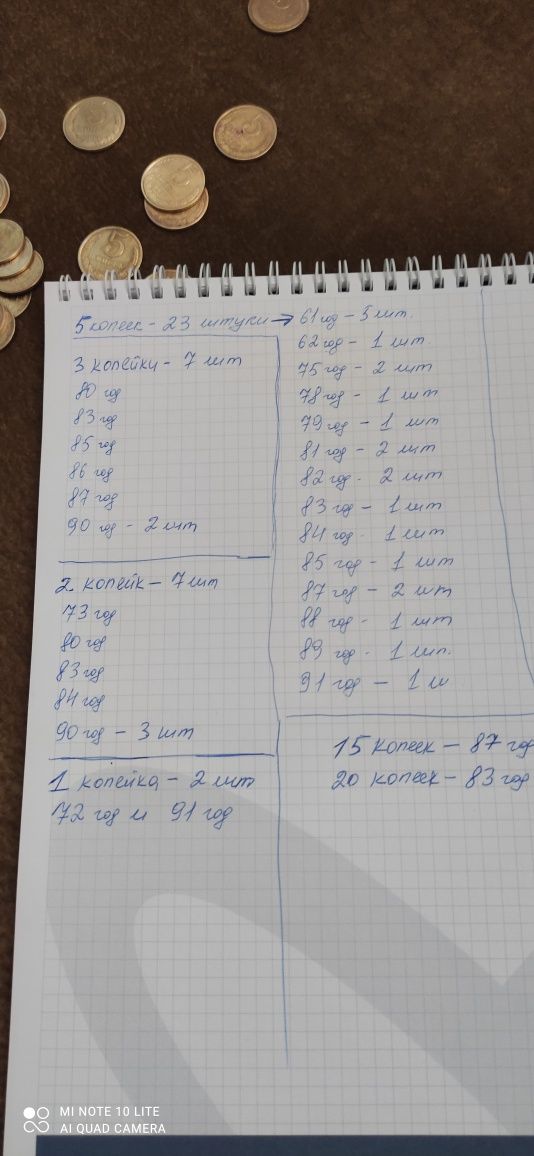 5 копеек - 23 штуки →
3 копейки - 7 шт
80 год
83 год
85 год
86 год
87 год
90 год - 2 шт
2 копейк - 7 шт
73 год
80 год
83 год
84 год
90 год - 3 шт
1 копейка - 2 шт
72 год и 91 год
61 год - 5 шт.
62 год - 1 шт.
75 год - 2 шт
78 год - 1 шт
79 год - 1 шт
81 год - 2 шт
82 год - 2 шт
83 год - 1 шт
84 год - 1 шт
85 год - 1 шт
87 год - 2 шт
88 год - 1 шт
89 год - 1 шт.
91 год - 1 ш
15 копеек - 87 год
20 копеек - 83 год
5
5
5
5
MI NOTE 10 LITE
AI QUAD CAMERA